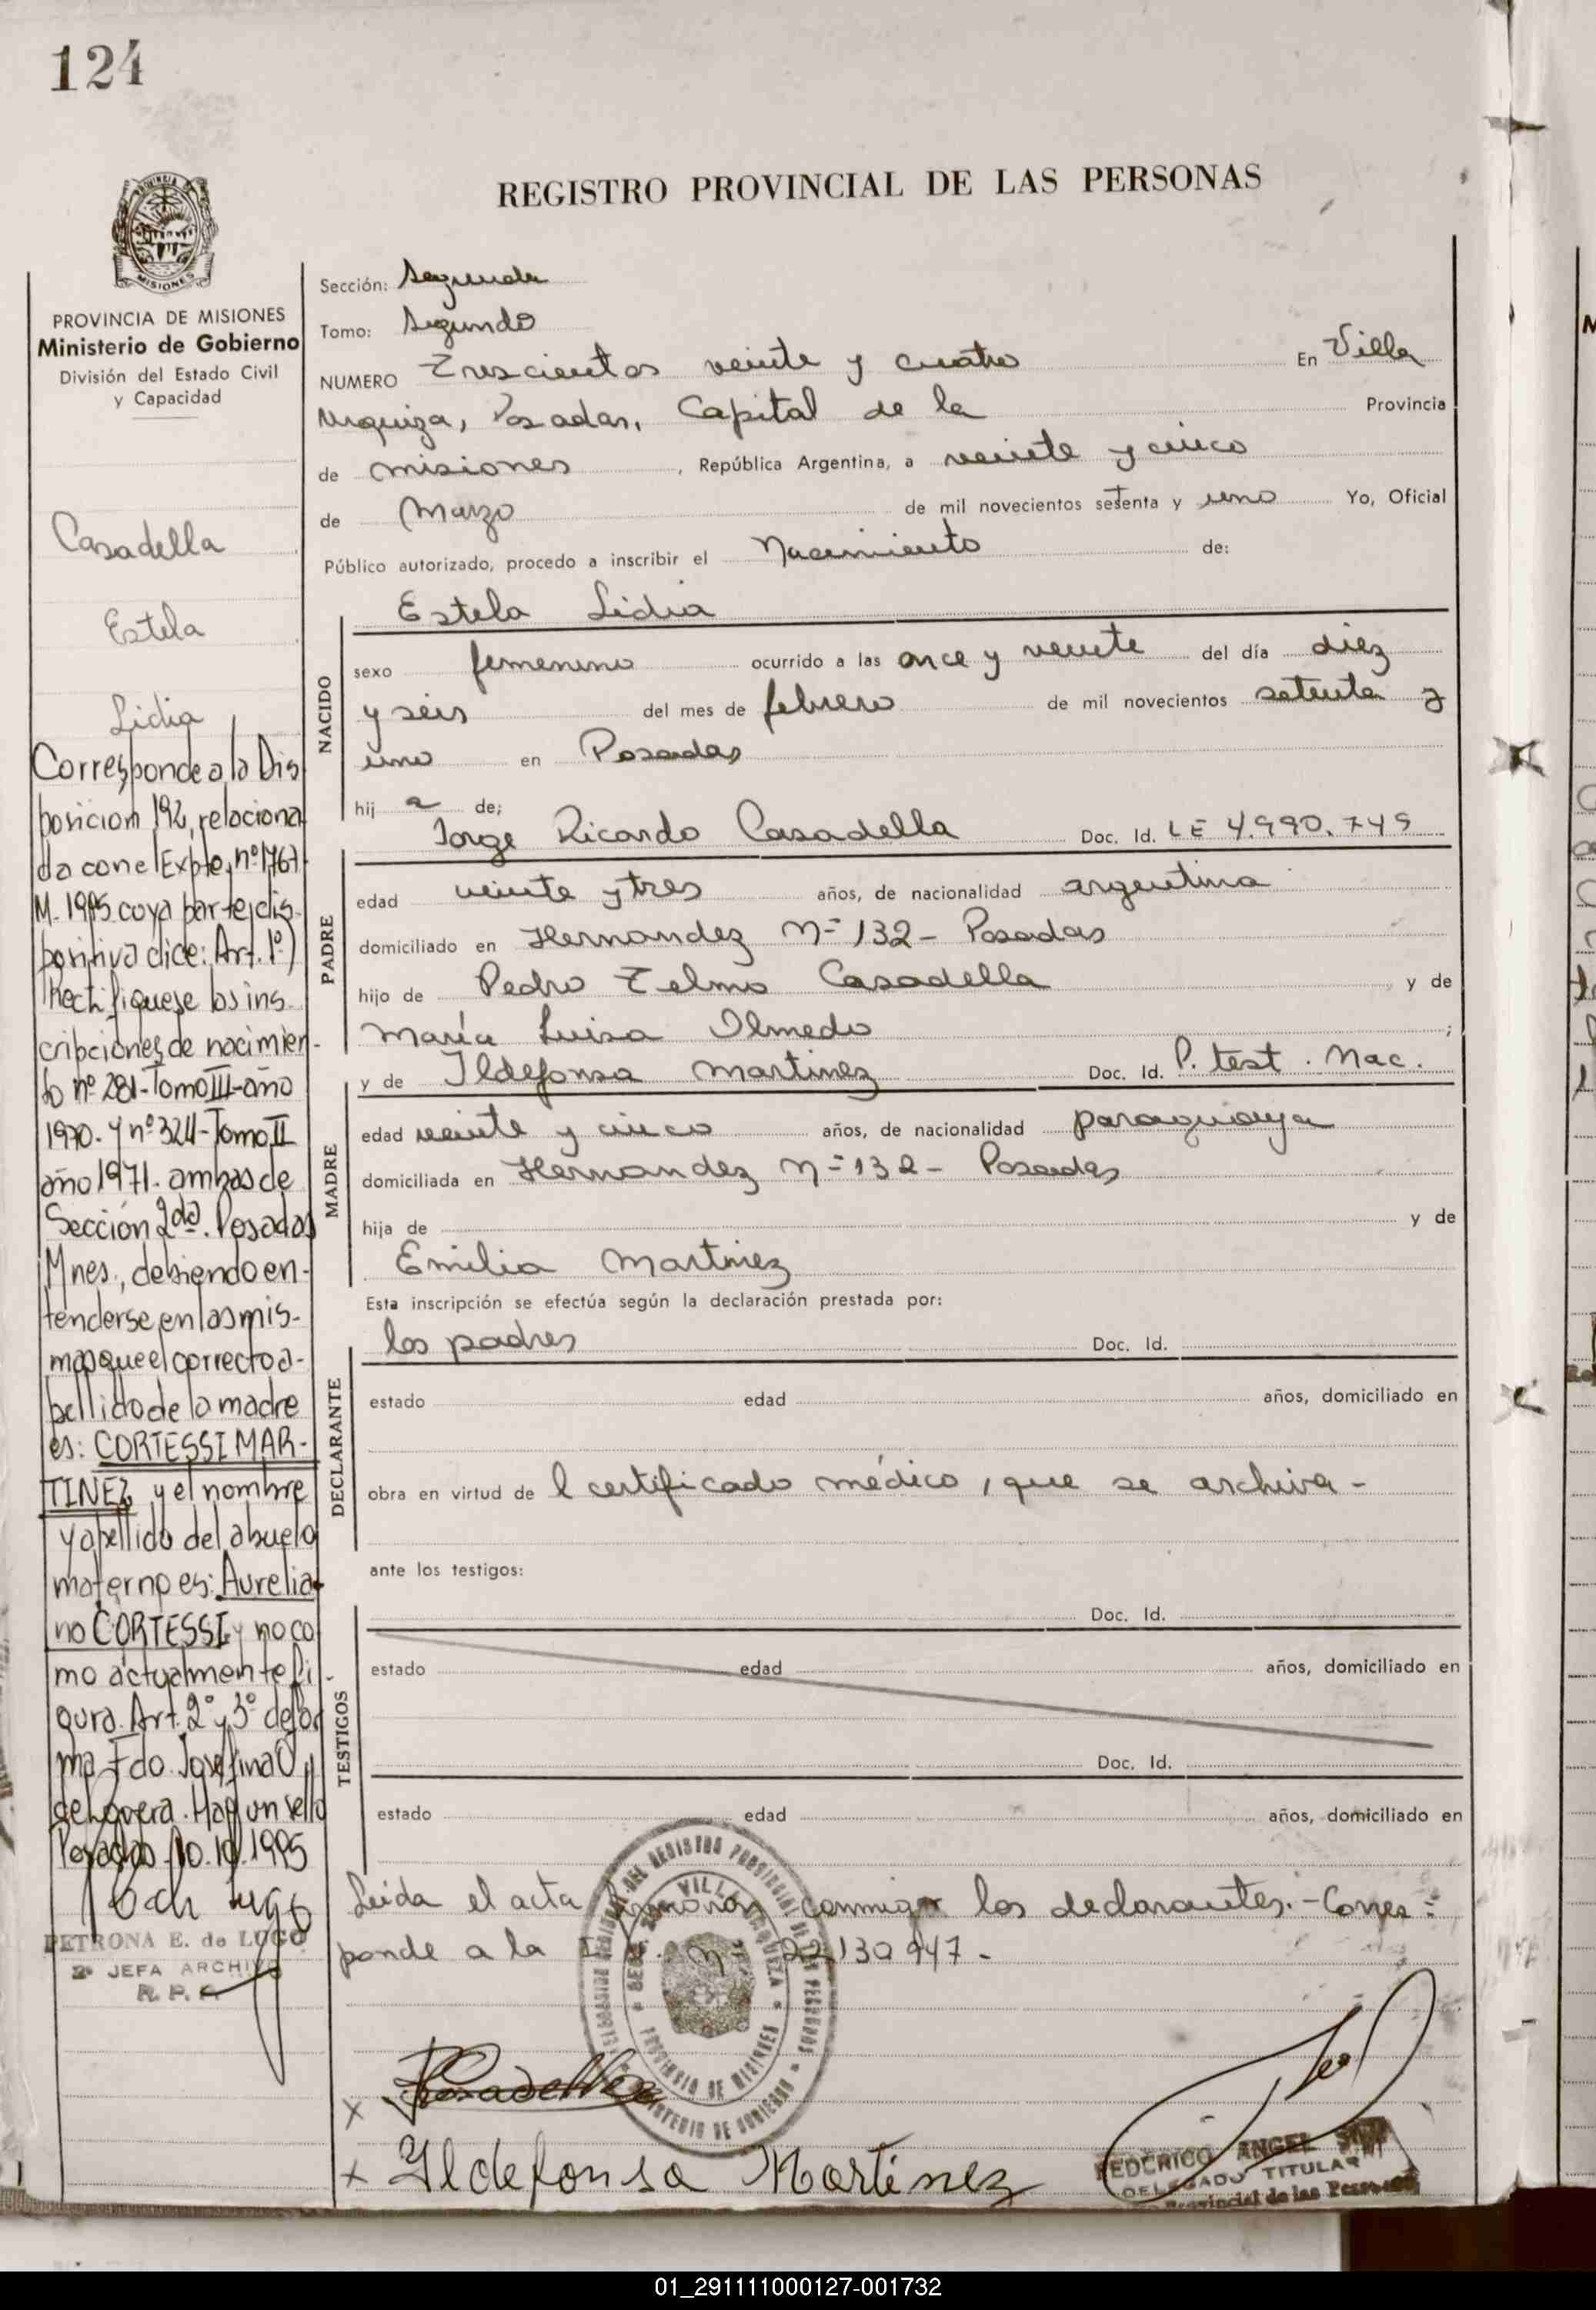 124
REGISTRO PROVINCIAL DE LAS PERSONAS
MISIONES
PROVINCIA DE MISIONES
Ministerio de Gobierno
División del Estado Civil
y Capacidad
Casadella
Estela
Lidia
Corresponde a la Dis
posicion 192, relaciona
da con el Expte, nº 1767
M. 1995 coya parte dis-
positiva dice: Art. 1º)
Rectifiquese las ins-
cripciones de nacimien-
to nº 281-Tomo III-año
1970. y nº 324-Tomo II
año 1971. ambas de
Sección 2da. Posadas
Mnes., debiendo en-
tenderse en las mis-
mas que el correcto a-
pellido de la madre
es: CORTESSI MAR-
TINEZ y el nombre
y apellido del abuelo
materno es: Aurelia-
no CORTESSI y no co
mo actualmente fi-
gura. Art. 2º y 3º de for
ma Fdo. Josefina O,
de Hay un sello
Posadas 10.10.1995
PETRONA E. de LUGO
2º JEFA ARCHIVO
R. P. P.
Sección: Segunda
Tomo: Segundo
NUMERO Trescientos veinte y cuatro En Villa
Urquiza, Posadas, Capital de la Provincia
de misiones, República Argentina, a veinte y cinco
de Marzo de mil novecientos setenta y uno Yo, Oficial
Público autorizado, procedo a inscribir el Nacimiento de:
Estela Lidia
NACIDO
sexo femenino ocurrido a las once y veinte del día diez
y seis del mes de febrero de mil novecientos setenta y
uno en Posadas
hij a de;
Jorge Ricardo Casadella Doc. Id. LE 4.990.749
PADRE
edad veinte y tres años, de nacionalidad argentina
domiciliado en Hernandez Nº 132 - Posadas
hijo de Pedro Telmo Casadella y de
María Luisa Olmedo ;
y de Ildefonsa Martinez Doc. Id. P. test. Nac.
MADRE
edad veinte y cinco años, de nacionalidad paraguaya
domiciliada en Hernandez Nº 132 - Posadas
hija de y de
Emilia Martinez
Esta inscripción se efectúa según la declaración prestada por:
los padres Doc. Id.
DECLARANTE
estado edad años, domiciliado en
obra en virtud de l certificado médico, que se archiva -
ante los testigos:
Doc. Id.
TESTIGOS
estado edad años, domiciliado en
Doc. Id.
estado edad años, domiciliado en
Leida el acta firmaron conmigo los declarantes.- Corres=
ponde a la Nº 22130947 -
Casadella
x Ildefonsa Martinez
FEDERICO ANGEL
DELEGADO TITULAR
Provincial de las Personas
01_291111000127-001732